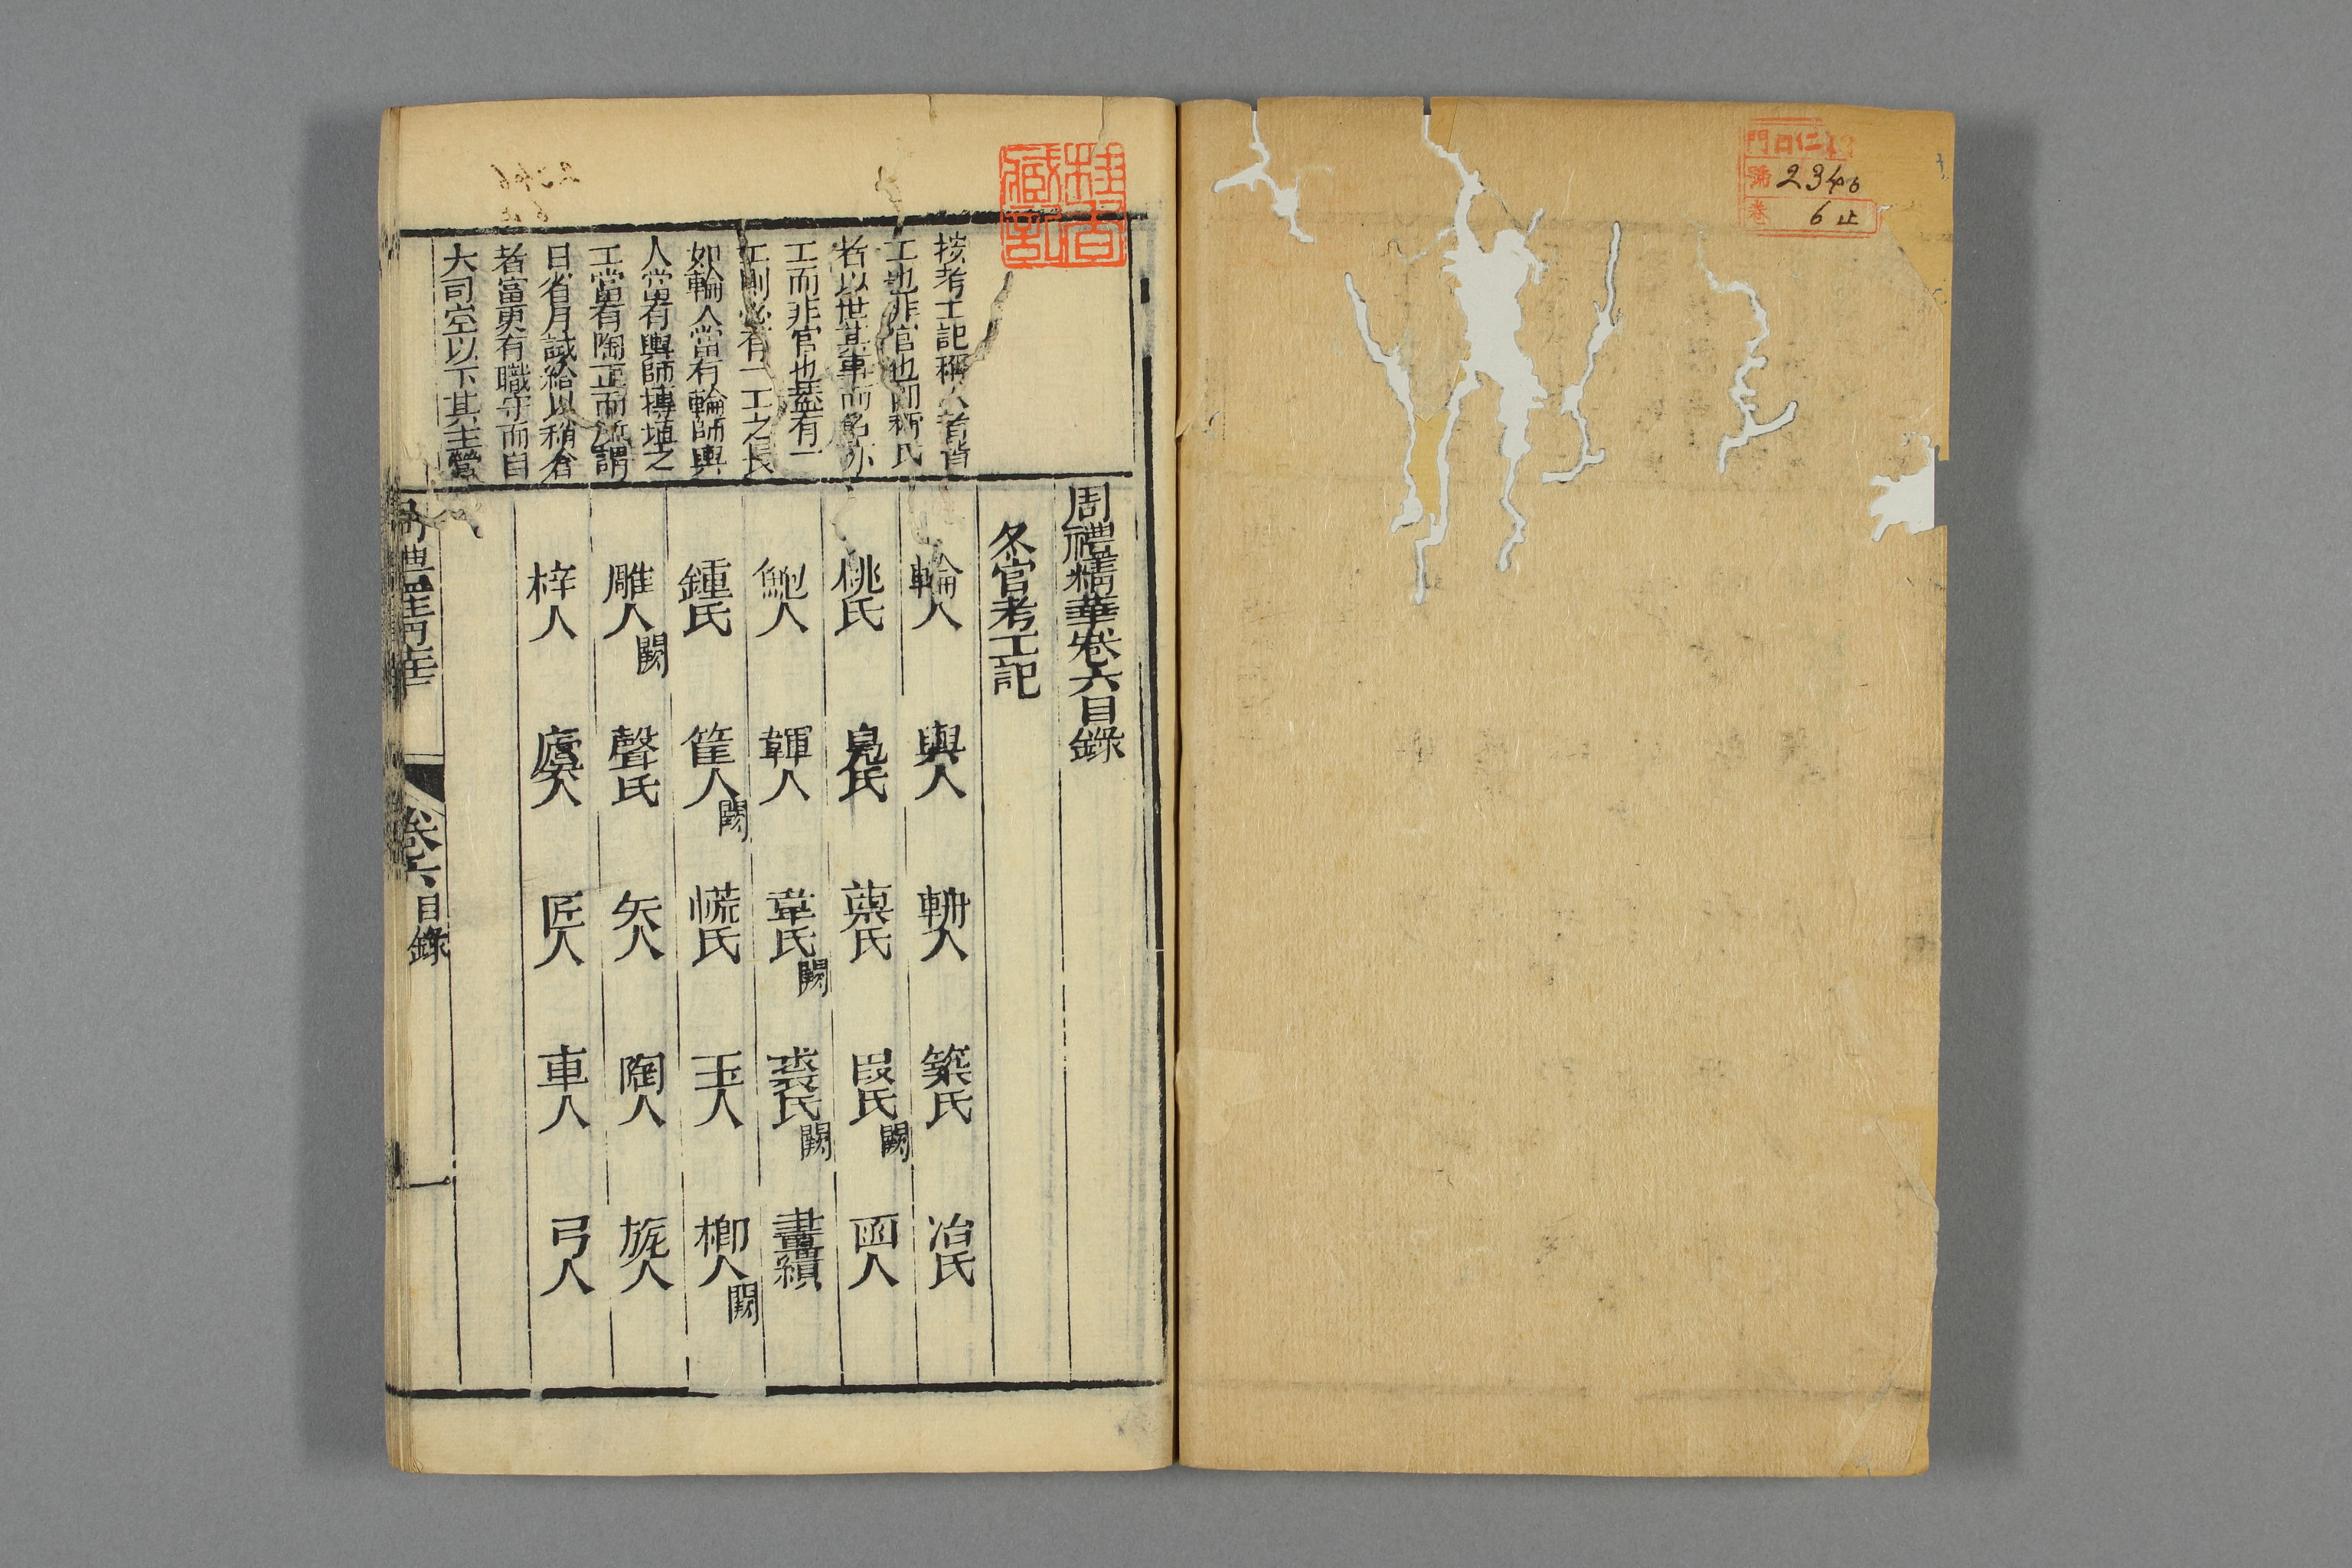 門 口仁
號 2346
卷 6止
周禮精華卷六目錄
冬官考工記
輪人 輿人 輈人 築氏 冶氏
桃氏 鳧氏 㮚氏 段氏闕 函人
鮑人 韗人 韋氏闕 裘氏闕 畫繢
鍾氏 筐人闕 㡛氏 玉人 櫛人闕
雕人闕 磬氏 矢人 陶人 旊人
梓人 廬人 匠人 車人 弓人
按考工記稱人者皆
工也非官也卽稱氏
者以世其事而名亦
工而非官也蓋有一
工則必有一工之長
如輪人當有輪師輿
人當有輿師摶埴之
工當有陶正而所謂
日省月試餼給以稍食
者當更有職守而自
大司空以下其主營
周禮精華 卷六目錄 一